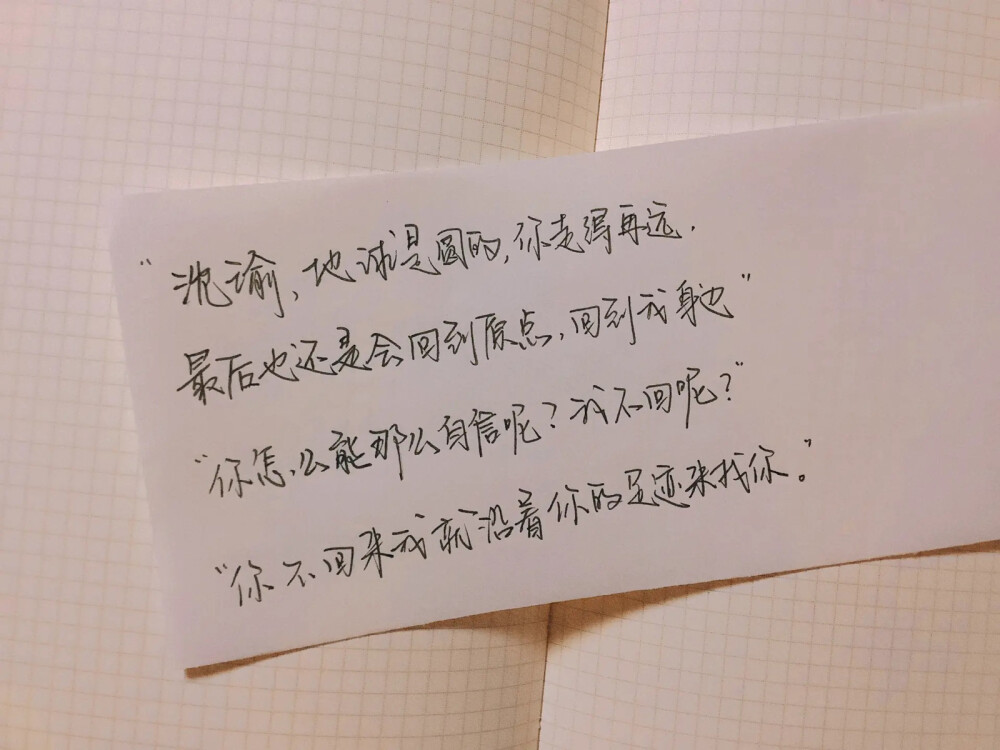 “沈谕,地球是圆的,你走得再远.
最后也还是会回到原点,回到我身边”
“你怎么能那么自信呢?我不回呢?”
“你不回来我就沿着你的足迹来找你。”